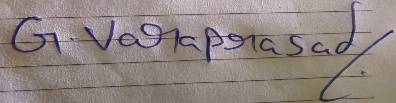 G. Varaprasad